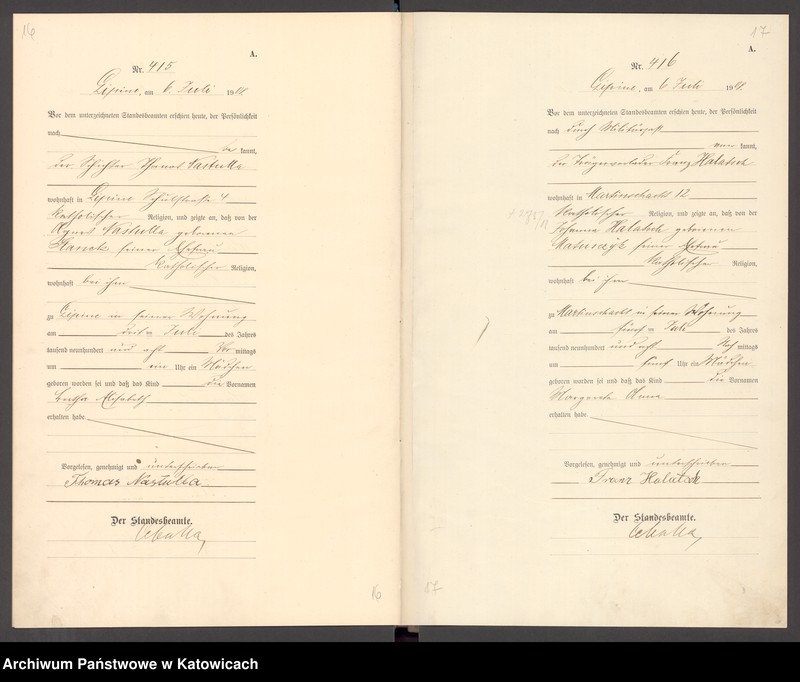 16
A.
Nr. 415
Lipine, am 6. Juli 1908.
Vor dem unterzeichneten Standesbeamten erschien heute, der Persönlichkeit
nach
be kannt,
der Schichter Thomas Nastulla
wohnhaft in Lipine Schulstraße 4
katholischer Religion, und zeigte an, daß von der
Agnes Nastulla geborenen
seiner Ehefrau
katholischer Religion,
wohnhaft bei ihm
zu Lipine in seiner Wohnung
am drei n Juli des Jahres
tausend neunhundert und acht Vor mittags
um ein Uhr ein Mädchen
geboren worden sei und daß das Kind die Vornamen
Elisabeth
erhalten habe.
Vorgelesen, genehmigt und unterschrieben
Thomas Nastulla
Der Standesbeamte.
Cebulla
16
17
A.
Nr. 416
Lipine, am 6. Juli 1908.
Vor dem unterzeichneten Standesbeamten erschien heute, der Persönlichkeit
nach durch Militärpaß
aner kannt,
der Franz Halatsch
wohnhaft in Martinschacht 12
katholischer Religion, und zeigte an, daß von der
Johanna Halatsch geborenen
Materczyk seiner Ehefrau
katholischer Religion,
wohnhaft bei ihm
zu Martinschacht in seiner Wohnung
am fünf n Juli des Jahres
tausend neunhundert und acht Nach mittags
um fünf Uhr ein Mädchen
geboren worden sei und daß das Kind die Vornamen
Margarete Anna
erhalten habe.
Vorgelesen, genehmigt und unterschrieben
Franz Halatsch
Der Standesbeamte.
Cebulla
17
Archiwum Państwowe w Katowicach